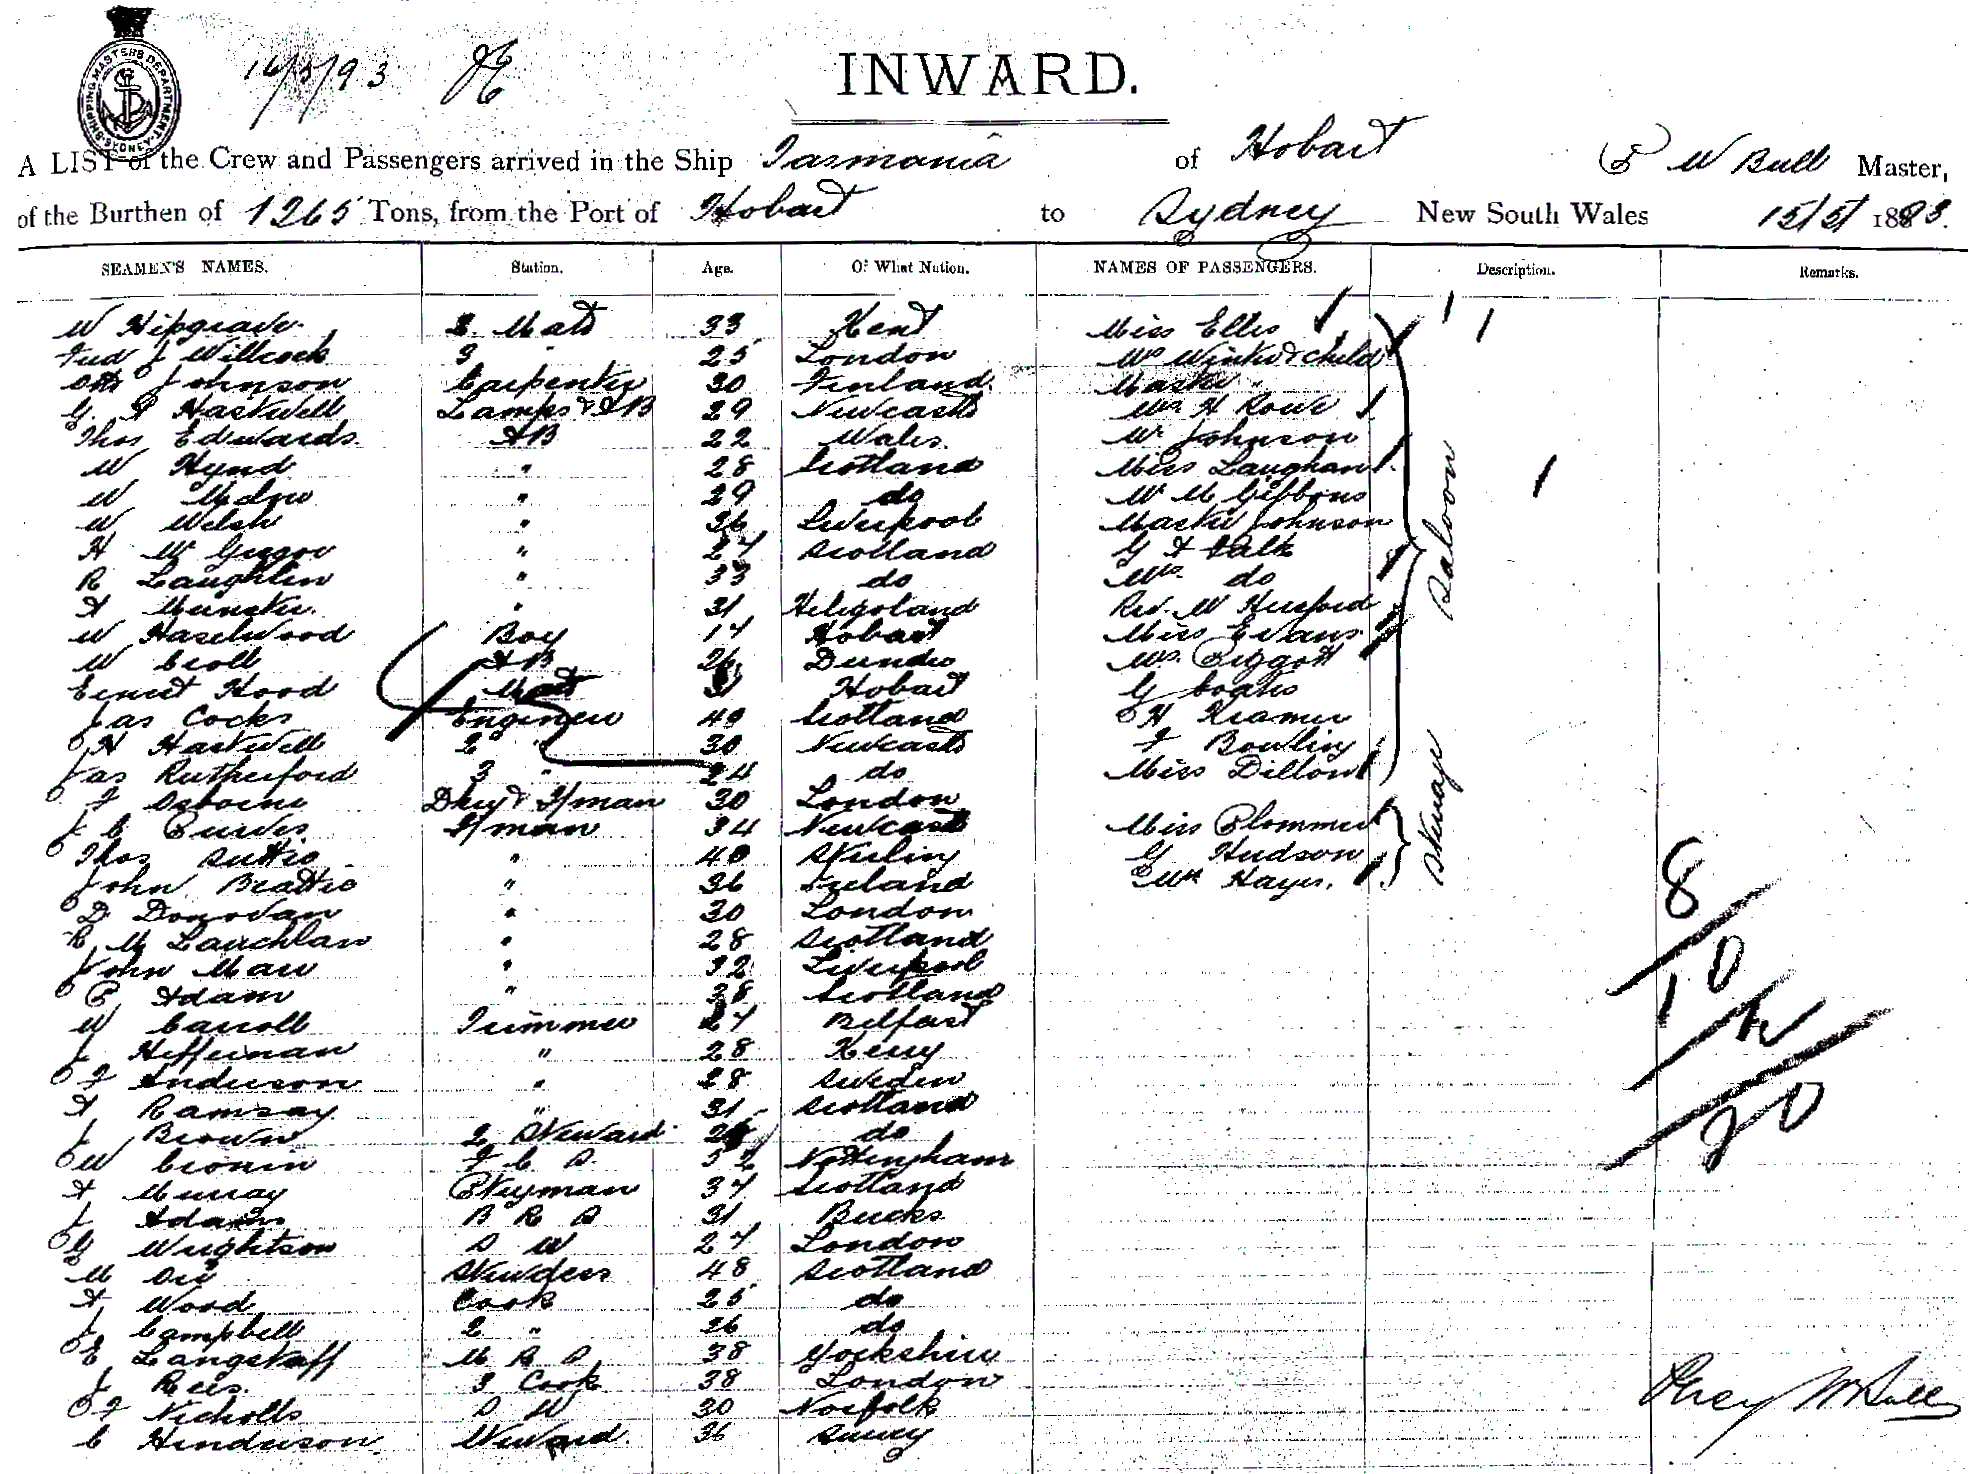 SHIPPING MASTERS DEPARTMENT SYDNEY
16/5/93
INWARD.
A LIST of the Crew and Passengers arrived in the Ship Tasmania of Hobart P W Bull Master,
of the Burthen of 1265 Tons, from the Port of Hobart to Sydney New South Wales 15/5/1893.
SEAMEN'S NAMES. Station. Age. Of What Nation. NAMES OF PASSENGERS. Description. Remarks.
W Hipgrave 2. Mate 33 Kent Miss Ellis
Fred J Willcock 3 " 25 London Mrs Winter & child
Otto Johnson Carpenter 30 Finland Master "
G. A Haswell Lamps & AB 29 Newcastle Mrs H Rowe
Thos Edwards AB 22 Wales Mr Johnson
W Hynd " 28 Scotland Miss Laughan
W " 29 do W M Gibbons
W Welsh " 36 Liverpool Master Johnson
H McGregor " 27 Scotland G A
R Laughlin " 33 do Mrs. do
A Munster " 31 Heligoland Rev. W Hereford
W Haselwood Boy 14 Hobart Miss Evans
W Croll AB 26 Dundee Mrs. Piggott
Ernest Hood Mate Hobart G Coghs
Jas Cocks Engineer 49 Scotland H Kramer
J H Haswell 2 " 30 Newcastle F Bowling
Jas Rutherford 3 " 24 do Miss Dillon
Saloon
F Osborne Dky & F/man 30 London
J C Purves F/man 34 Newcastle Miss Plommer
Thos Suttie " 40 Stirling G Hudson
John Beattie " 36 Ireland Mrs Hayes.
Steerage
D Donovan " 30 London
R McLauchlan " 28 Scotland
John Maw " 32 Liverpool
P Adam " 38 Scotland
W Carroll Trimmer 27 Belfast
J Heffernan " 28 Kerry
F Anderson " 28 Sweden
A Ramsay " 31 Scotland
J Brown 2 Steward do
W Cronin F C S 52 Nottingham
A Murray P/Keyman 34 Scotland
J Adams B R S 31 Bucks
G Wrightson S W 27 London
M Stewdess 48 Scotland
A Wood Cook 25 do
J Campbell 2 " 26 do
E Langstaff M R S 38 Yorkshire
J Rees. 3 Cook 38 London
J F Nicholls S W 30 Norfolk
C Henderson Steward. 36 Surrey
8
10
2
20
Percy W Bull